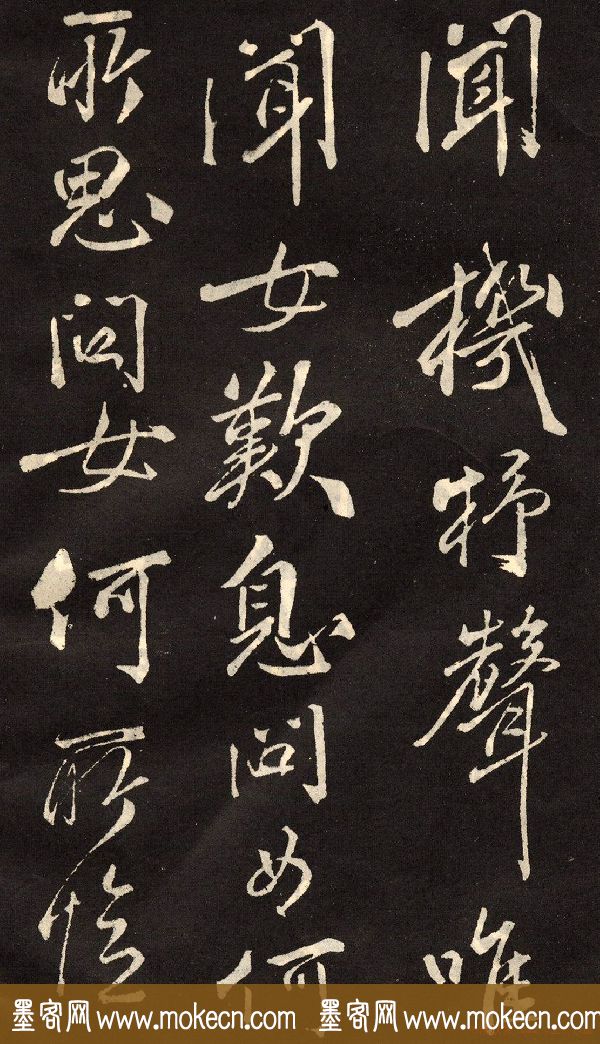 聞機杼聲唯
聞女歎息問女何
所思問女何所憶
墨客网 www.mokecn.com 墨客网 www.mokecn.com